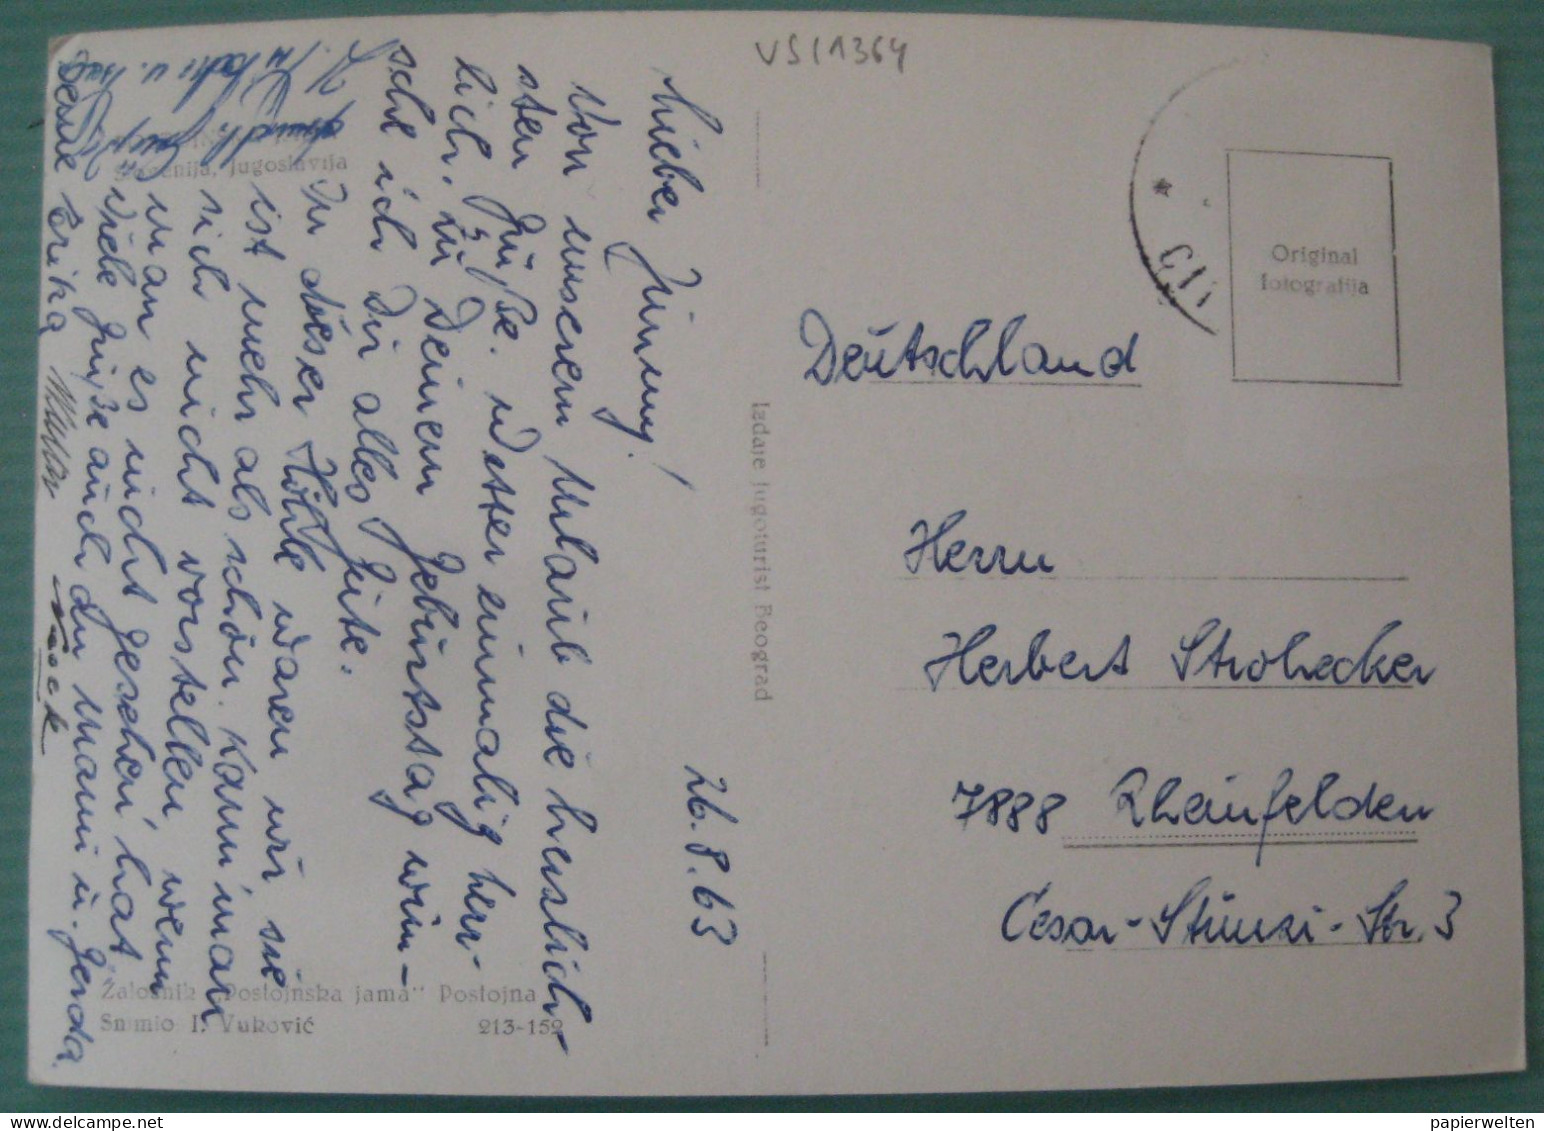 VS11364
Lieber Jimmy!
26.8.63
Von unserem Urlaub die herzlich-
sten Grüße. Wetter einmalig herr-
lich. Zu Deinem Geburtstag wün-
sche ich Dir alles Gute.
In dieser Höhle waren wir sie
ist mehr als schön. Kann man
sich nicht vorstellen wenn
man es nicht gesehen hat
Viele Grüße auch an Mami u. Gerda.
Deine Erika
Slovenija, Jugoslavija
Založnik "Postojnska jama" Postojna
Snimio I. Vuković 213-152
Izdaje Jugoturist Beograd
Original
fotografija
Deutschland
Herrn
Herbert Strohecker
7888 Rheinfelden
Cesar-Stünzi-Str. 3
papierwelten